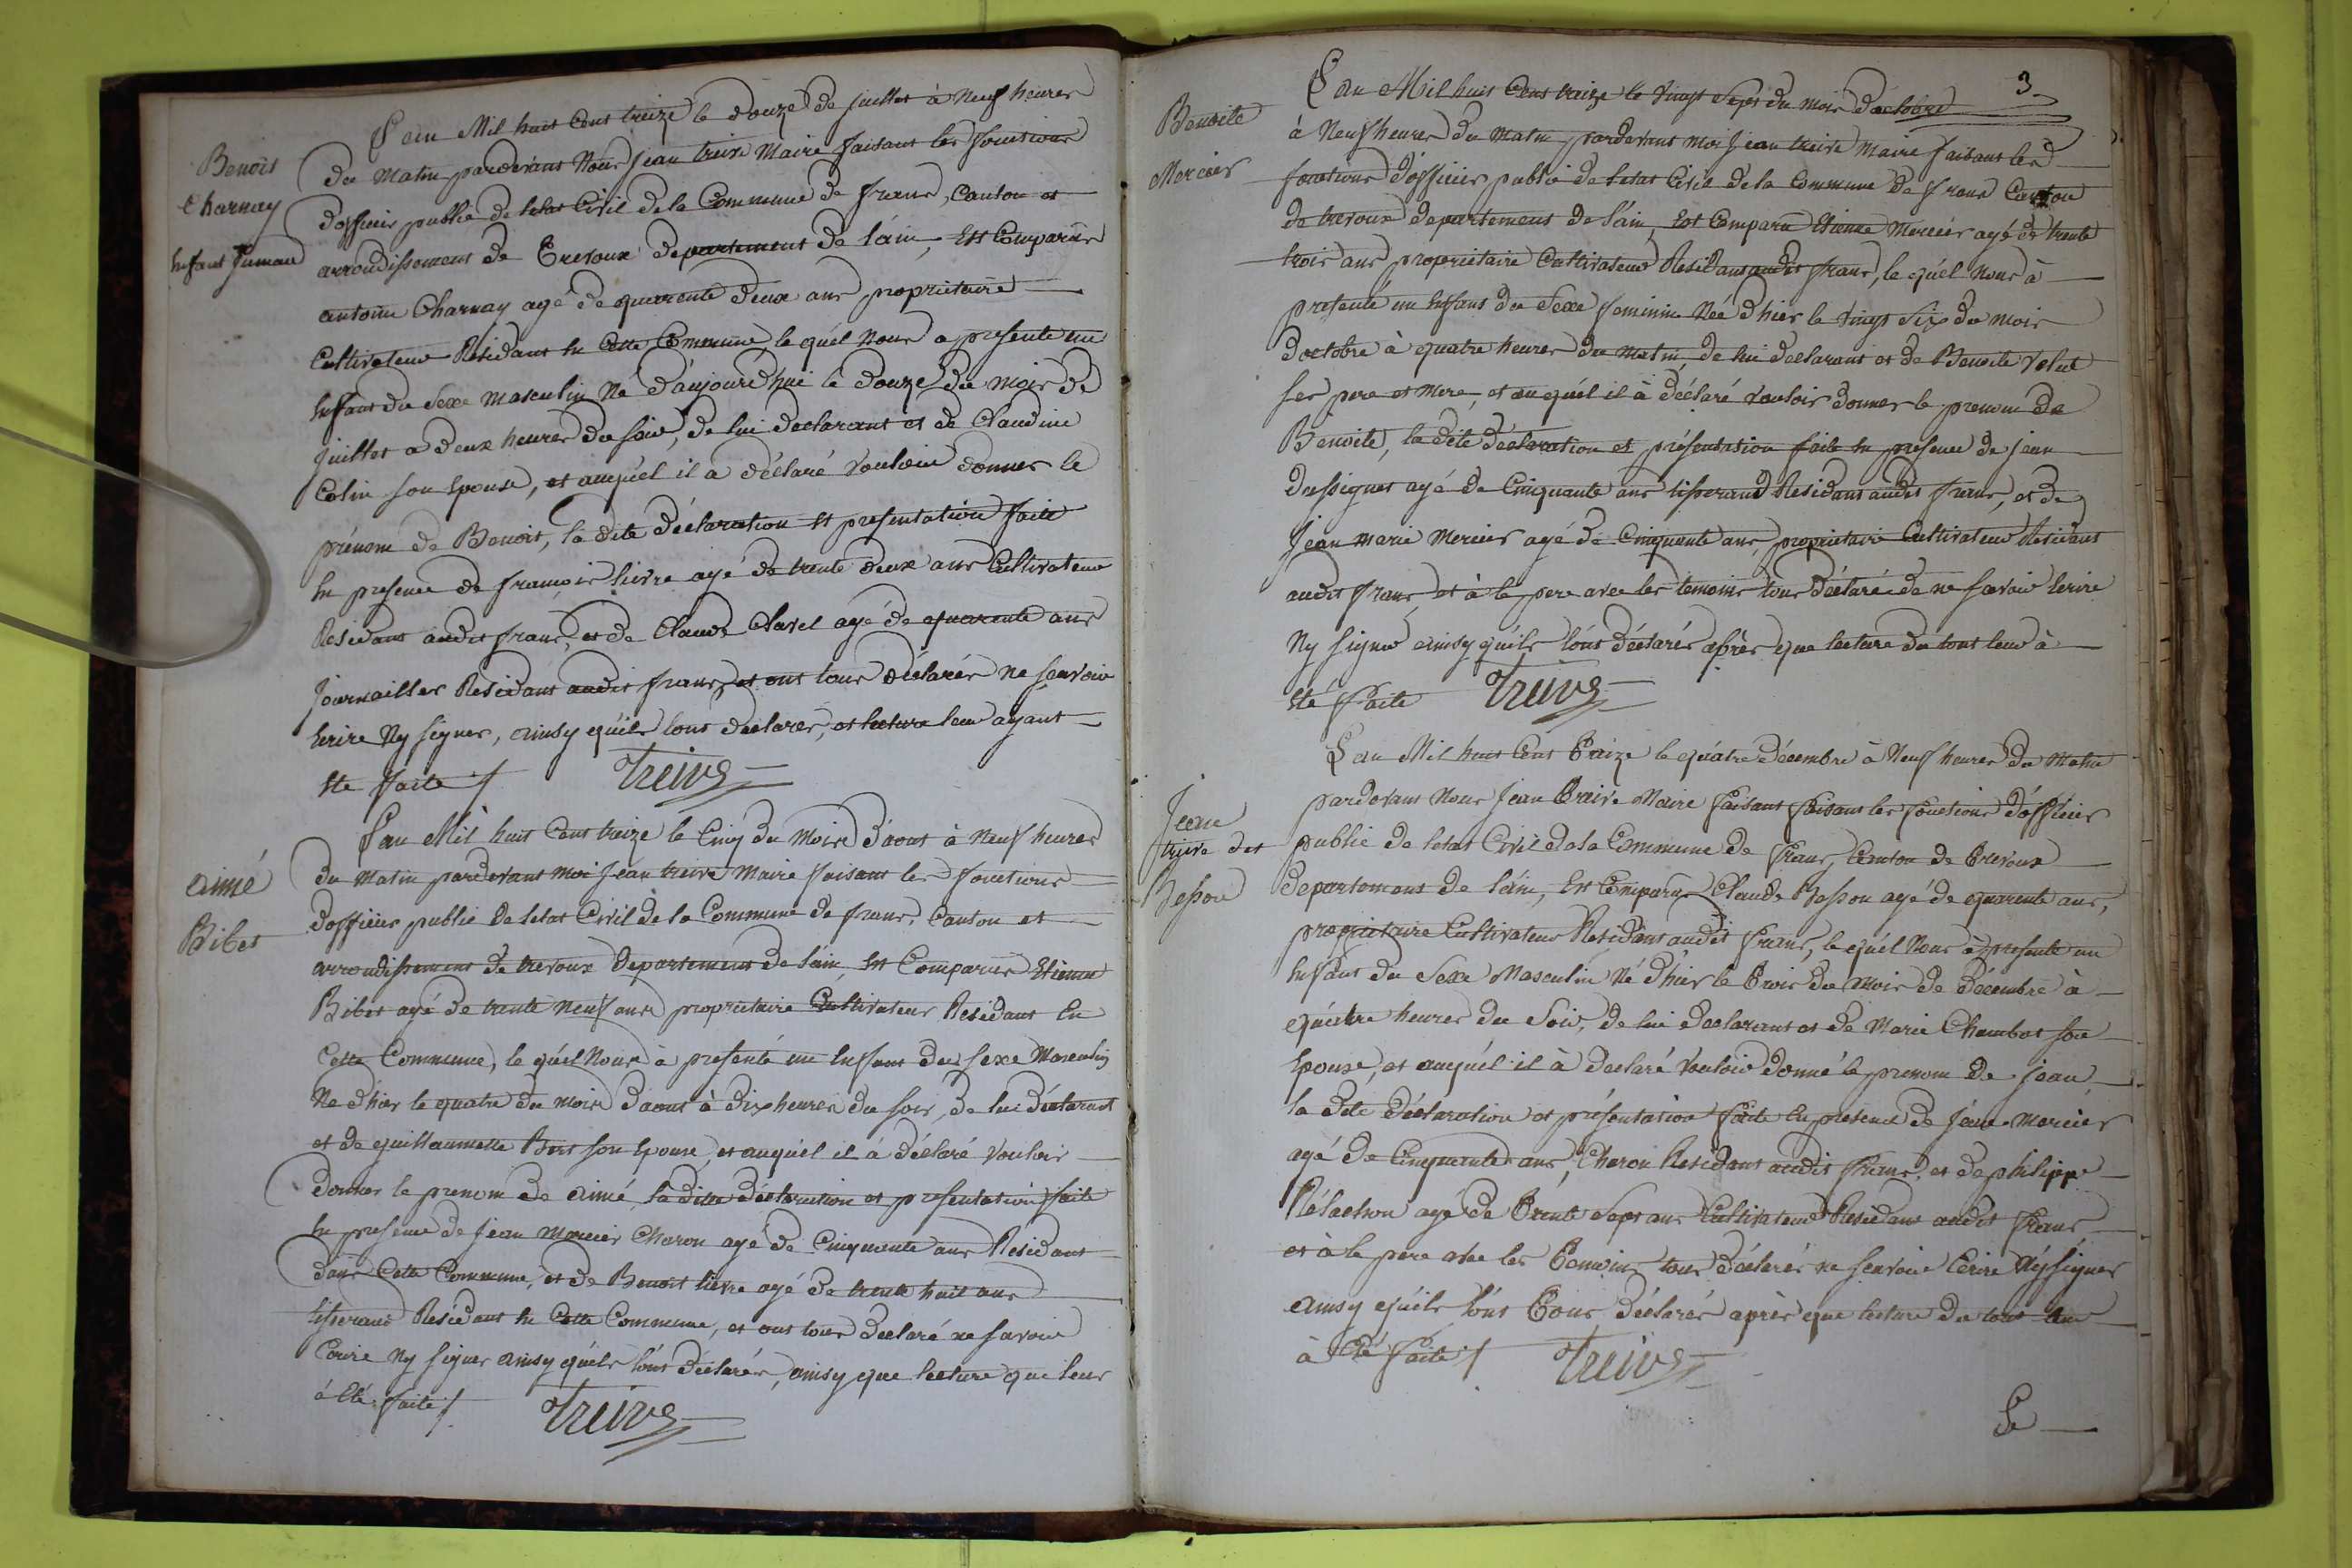 Benoit
Charnay
Enfant Jumau
L'an Mil huit Cent treize le douze de juillet à Neuf heures
du Matin pardevant Nous jean treive Maire faisant les fonctions
d'officier public de letat Civil de la Commune de frans, Canton et
arrondissement de Trevoux departement de l'ain, Est Comparue
antoine Charnay agé de quarente deux ans propriétaire
Cultivateur Residant En Cette Commune, le quél Nous a presente un
Enfant du Sexe Masculin Né d'aujourd'hui le douze du mois de
Juillet a deux heures du soir, de lui declarant et de Claudine
Colin son Epouse, et auquél il a déclaré vouloir donner le
prénom de Benoit, la dite déclaration et presentation faite
En presence de françois lievre agé de trente deux ans Cultivateur
Residant audit frans, et de Claude Clavel agé de quarente ans
Journaillier Residant audit frans, et ont tous déclarés ne scavoir
Ecrire Ny signer, ainsy quéils lont declarés, et lecture leur ayant
Eté faite /. Treive
aimé
Bibet
L'an Mil huit Cent treize le Cinq du Mois d'aout à Neuf heures
du Matin pardevant moi Jean treive Maire faisant les fonctions
dofficier public de letat Civil de la Commune de frans, Canton et
arrondissement de trevoux departement de l'ain, Est Comparue Etienne
Bibet agé de trente neuf ans propriétaire Cultivateur Residant En
Cette Commune, le quél Nous à presenté un Enfant du sexe Masculin
Né d'hier le quatre du mois d'aout à dix heures du soir, de lui déclarant
et de guillaumette son Epouse, et auquél il à déclaré vouloir
donner le prenom de aimé, la dite déclaration et presentation faite
En presence de jean Mercier Charon agé de Cinquente ans Residant
dans Cette Commune, et de Benoit lievre agé de trente huit ans
tisserand Residant En Cette Commune, et ont tous declaré ne savoir
Ecrire Ny signer ainsy quéils lónt déclarés, ainsy que lecture que leur
à Eté faite /. Treive
3
Benoite
Mercier
L'an Mil huit Cent treize le vingt Sept du mois d'octobre
à Neuf heures du matin pardevant moi Jean treive Maire faisant les
fonctions d'officier public de letat Civil de la Commune de frans Canton
de trevoux departement de l'ain, Est Comparu Etienne Mercier agé de trente
trois ans propriétaire Cultivateur Residant audit frans, le quél Nous à
presenté un Enfant du Sexe feminin Née d'hier le vingt Six du mois
d'octobre à quatre heures du matin, de lui declarant et de Benoite Volut
ses pere et mere, et auquél il à déclaré vouloir donner le prenom de
Benoite, la dite déclaration et présentation faite En presence de jean
Dussignet agé de Cinquante ans tisserand Residant audit frans, et de
Jean marie Mercier agé de Cinquente ans, propriétaire Cultivateur Residant
audit frans, et à le pere avec les temoins tous déclaré de ne savoir Ecrire
Ny signer ainsy quéils lónt déclarés aprés que lecture du tout leur à
Eté faite Treive
Jean
treive det
Besson
L'an Mil huit Cent Treize le quatre décembre à Neuf heures du Matin
pardevant Nous Jean Treive Maire faisant faisant les fonctions d'officier
public de letat Civil de la Commune de frans, Canton de Trevoux
departement de l'ain, Est Comparue Claude Besson agé de quarente ans,
propriétaire Cultivateur Residant audit frans, le quél Nous à presente un
Enfant du Sexe Masculin Né d'hier le Trois du mois de décembre à
quatre heures du Soir, de lui declarant et de Marie Chambat son
Epouse, et auquél il à declaré vouloir donné le prenom de jean
la dite déclaration et présentation faite En presence de jean Mercier
agé de Cinquante ans, Charon Residant audit frans, et de philippe
agé de Trente Sept ans Cultivateur Residant audit frans
et à le pere avec les Temoins tous déclarés ne scavoir Ecrire Ny signer
ainsy quéils lónt Tous déclarés aprés que lecture du tout leur
à Eté faite /. Treive
Le